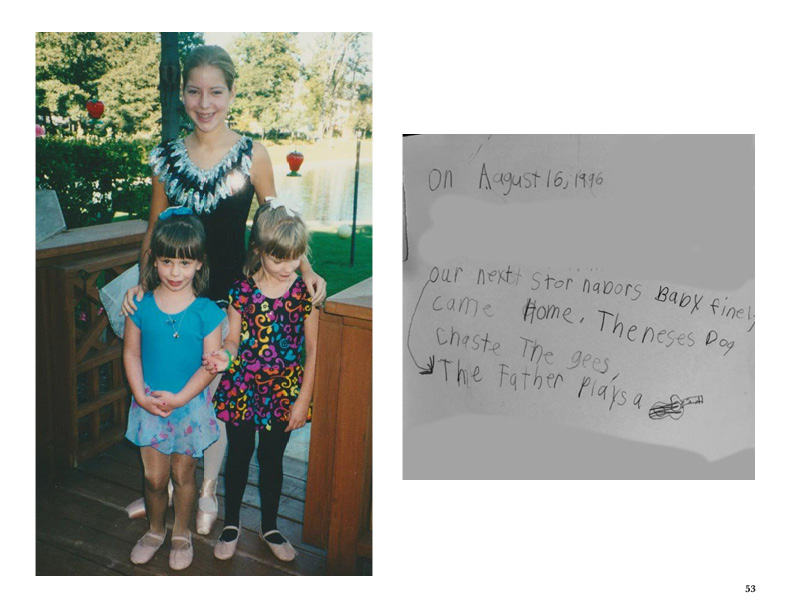 on August 16, 1996
our next stor nabors Baby finely
came Home. The neses Dog
chaste The gees,
The Father plays a
53